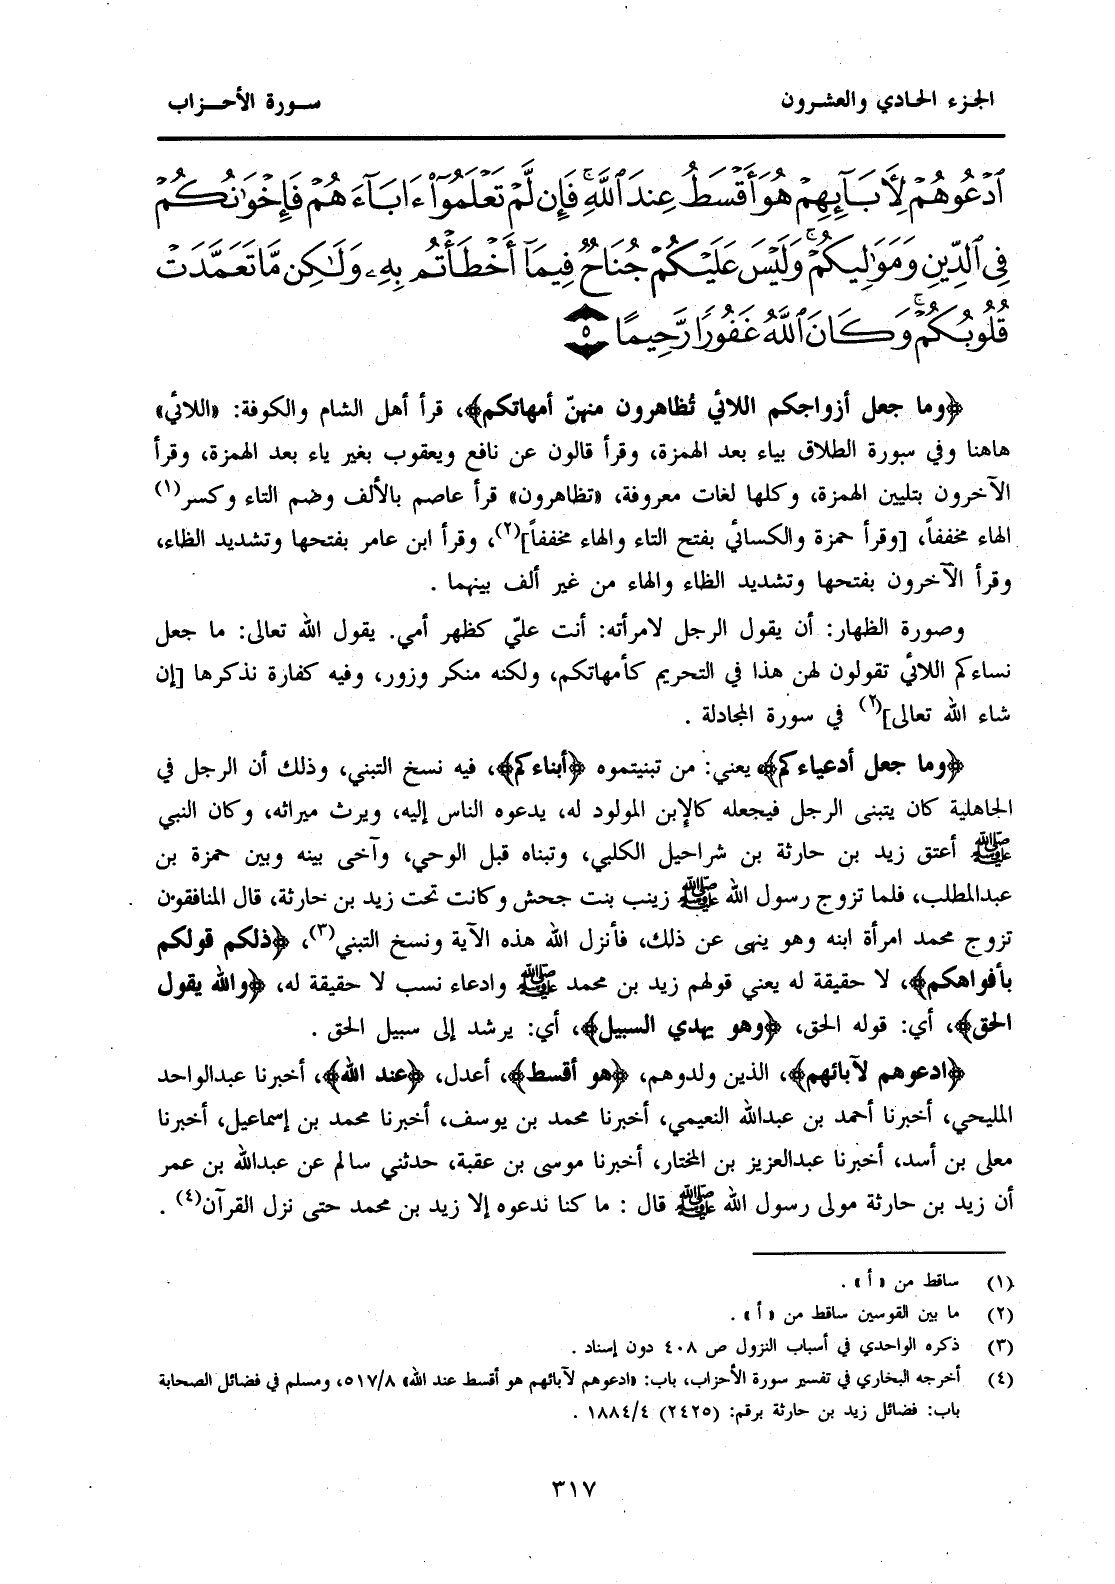 الجزء الحادي والعشرون
سورة الأحزاب
ٱدْعُوهُمْ لِأٓبَآئِهِمْ هُوَ أَقْسَطُ عِندَ ٱللَّهِ ۚ فَإِن لَّمْ تَعْلَمُوٓا۟ ءَابَآءَهُمْ فَإِخْوَٰنُكُمْ
فِى ٱلدِّينِ وَمَوَٰلِيكُمْ ۚ وَلَيْسَ عَلَيْكُمْ جُنَاحٌ فِيمَآ أَخْطَأْتُم بِهِۦ وَلَٰكِن مَّا تَعَمَّدَتْ
قُلُوبُكُمْ ۚ وَكَانَ ٱللَّهُ غَفُورًا رَّحِيمًا ٥
﴿وما جعل أزواجكم اللائي تُظاهرون منهنّ أمهاتكم﴾، قرأ أهل الشام والكوفة: «اللائي»
هاهنا وفي سورة الطلاق بياء بعد الهمزة، وقرأ قالون عن نافع ويعقوب بغير ياء بعد الهمزة، وقرأ
الآخرون بتليين الهمزة، وكلها لغات معروفة، «تظاهرون» قرأ عاصم بالألف وضم التاء وكسر(١)
الهاء مخففاً، [وقرأ حمزة والكسائي بفتح التاء والهاء مخففاً](٢)، وقرأ ابن عامر بفتحها وتشديد الظاء،
وقرأ الآخرون بفتحها وتشديد الظاء والهاء من غير ألف بينهما .
وصورة الظهار: أن يقول الرجل لامرأته: أنت عليّ كظهر أمي. يقول الله تعالى: ما جعل
نساءكم اللائي تقولون لهن هذا في التحريم كأمهاتكم، ولكنه منكر وزور، وفيه كفارة نذكرها [إن
شاء الله تعالى](٢) في سورة المجادلة .
﴿وما جعل أدعياءكم﴾ يعني: من تبنيتموه ﴿أبناءكم﴾، فيه نسخ التبني، وذلك أن الرجل في
الجاهلية كان يتبنى الرجل فيجعله كالإبن المولود له، يدعوه الناس إليه، ويرث ميراثه، وكان النبي
ﷺ أعتق زيد بن حارثة بن شراحيل الكلبي، وتبناه قبل الوحي، وآخى بينه وبين حمزة بن
عبدالمطلب، فلما تزوج رسول الله ﷺ زينب بنت جحش وكانت تحت زيد بن حارثة، قال المنافقون
تزوج محمد امرأة ابنه وهو ينهى عن ذلك، فأنزل الله هذه الآية ونسخ التبني(٣)، ﴿ذلكم قولكم
بأفواهكم﴾، لا حقيقة له يعني قولهم زيد بن محمد ﷺ وادعاء نسب لا حقيقة له، ﴿والله يقول
الحق﴾، أي: قوله الحق، ﴿وهو يهدي السبيل﴾، أي: يرشد إلى سبيل الحق .
﴿ادعوهم لآبائهم﴾، الذين ولدوهم، ﴿هو أقسط﴾، أعدل، ﴿عند الله﴾، أخبرنا عبدالواحد
المليحي، أخبرنا أحمد بن عبدالله النعيمي، أخبرنا محمد بن يوسف، أخبرنا محمد بن إسماعيل، أخبرنا
معلى بن أسد، أخبرنا عبدالعزيز بن المختار، أخبرنا موسى بن عقبة، حدثني سالم عن عبدالله بن عمر
أن زيد بن حارثة مولى رسول الله ﷺ قال : ما كنا ندعوه إلا زيد بن محمد حتى نزل القرآن(٤) .
(١) ساقط من «أ» .
(٢) ما بين القوسين ساقط من «أ» .
(٣) ذكره الواحدي في أسباب النزول ص ٤٠٨ دون إسناد .
(٤) أخرجه البخاري في تفسير سورة الأحزاب، باب: «ادعوهم لآبائهم هو أقسط عند الله» ٥١٧/٨، ومسلم في فضائل الصحابة
باب: فضائل زيد بن حارثة برقم: (٢٤٢٥) ١٨٨٤/٤ .
٣١٧